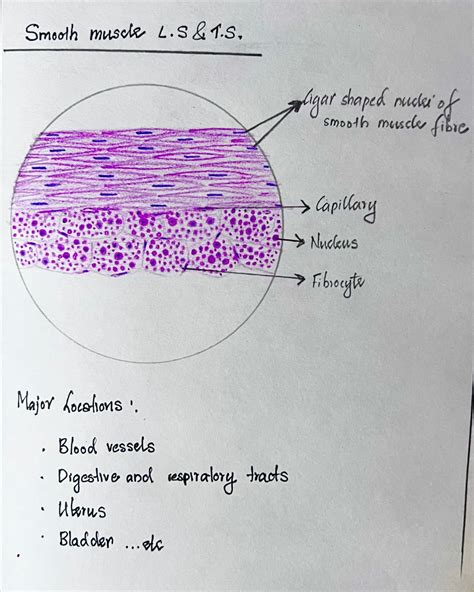 Smooth muscle L.S & T.S.
Cigar shaped nuclei of
smooth muscle fibre
Capillary
Nucleus
Fibrocyte
Major Locations :.
· Blood vessels
· Digestive and respiratory tracts
· Uterus
· Bladder ...etc